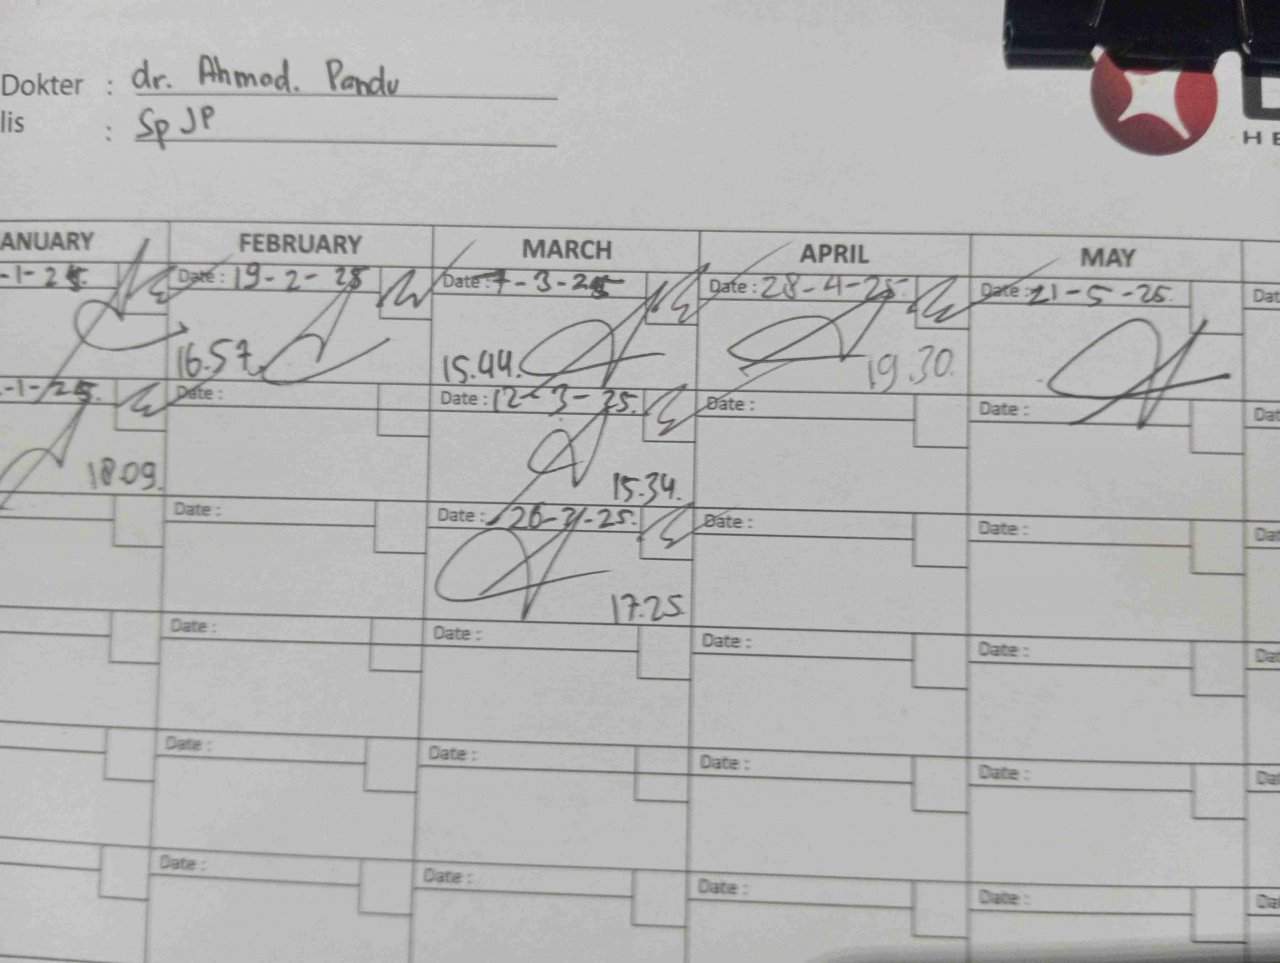 Dokter : dr. Ahmad. Pandu
lis : Sp JP
HE
ANUARY FEBRUARY MARCH APRIL MAY
-1-25. Date : 19-2-25 Date : 7-3-25 Date : 28-4-25. Date : 21-5-25. Dat
16.57 15.44. 19.30.
-1-25. Date : Date : 12-3-25. Date : Date : Dat
18.09. 15.34.
Date : Date : 26-3-25. Date : Date : Dat
17.25
Date : Date : Date : Date : Dat
Date : Date : Date : Date : Dat
Date : Date : Date : Date : Dat